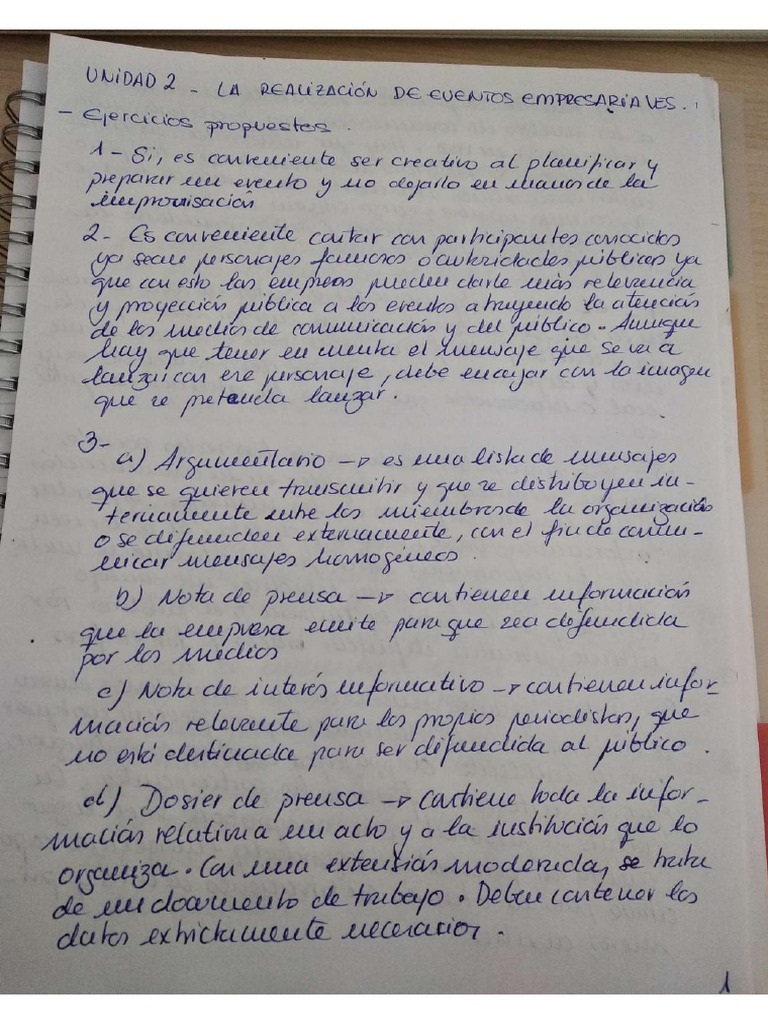 UNIDAD 2 - LA REALIZACIÓN DE EVENTOS EMPRESARIALES.
- Ejercicios propuestos.
1- Si, es conveniente ser creativo al planificar y
preparar un evento y no dejarlo en manos de la
improvisación
2- Es conveniente contar con participantes conocidos
ya sean personajes famosos o autoridades públicas ya
que con esto las empresas pueden darle más relevancia
y proyección pública a los eventos atrayendo la atención
de los medios de comunicación y del público. Aunque
hay que tener en cuenta el mensaje que se va a
lanzar con ese personaje, debe encajar con la imagen
que se pretenda lanzar.
3-
a) Argumentario → es una lista de mensajes
que se quieren transmitir y que se distribuyen in-
ternamente entre los miembros de la organización
o se difunden externamente, con el fin de comu-
nicar mensajes homogéneos.
b) Nota de prensa → contienen información
que la empresa emite para que sea difundida
por los medios
c) Nota de interés informativo → contienen infor-
mación relevante para los propios periodistas, que
no está destinada para ser difundida al público.
d) Dosier de prensa → contiene toda la infor-
mación relativa a un acto y a la institución que lo
organiza. Con una extensión moderada, se trata
de un documento de trabajo. Deben contener los
datos extrictamente necesarios.
1